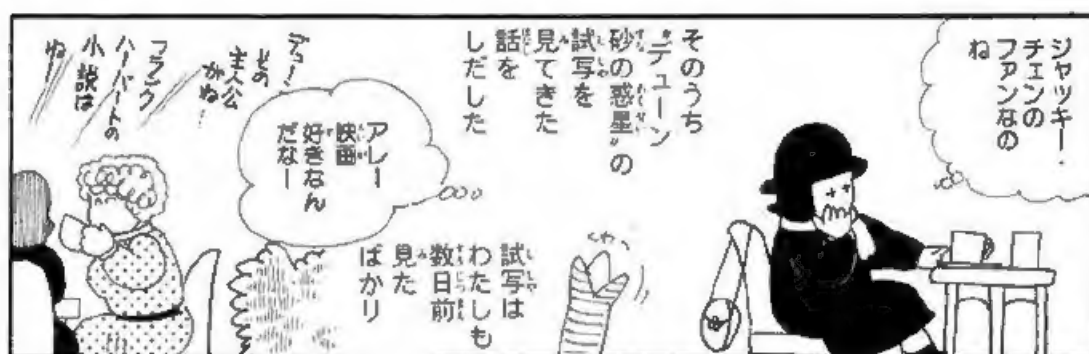 ジャッキー・
チェンの
ファンなの
ね
そのうち
“デューン
砂の惑星”の
試写を
見てきた
話を
しだした
くわっ
試写は
わたしも
数日前
見た
ばかり
アレー
映画
好きなん
だなー
デュー!
その
主人公
がね…
フランク
ハーバートの
小説は
ね